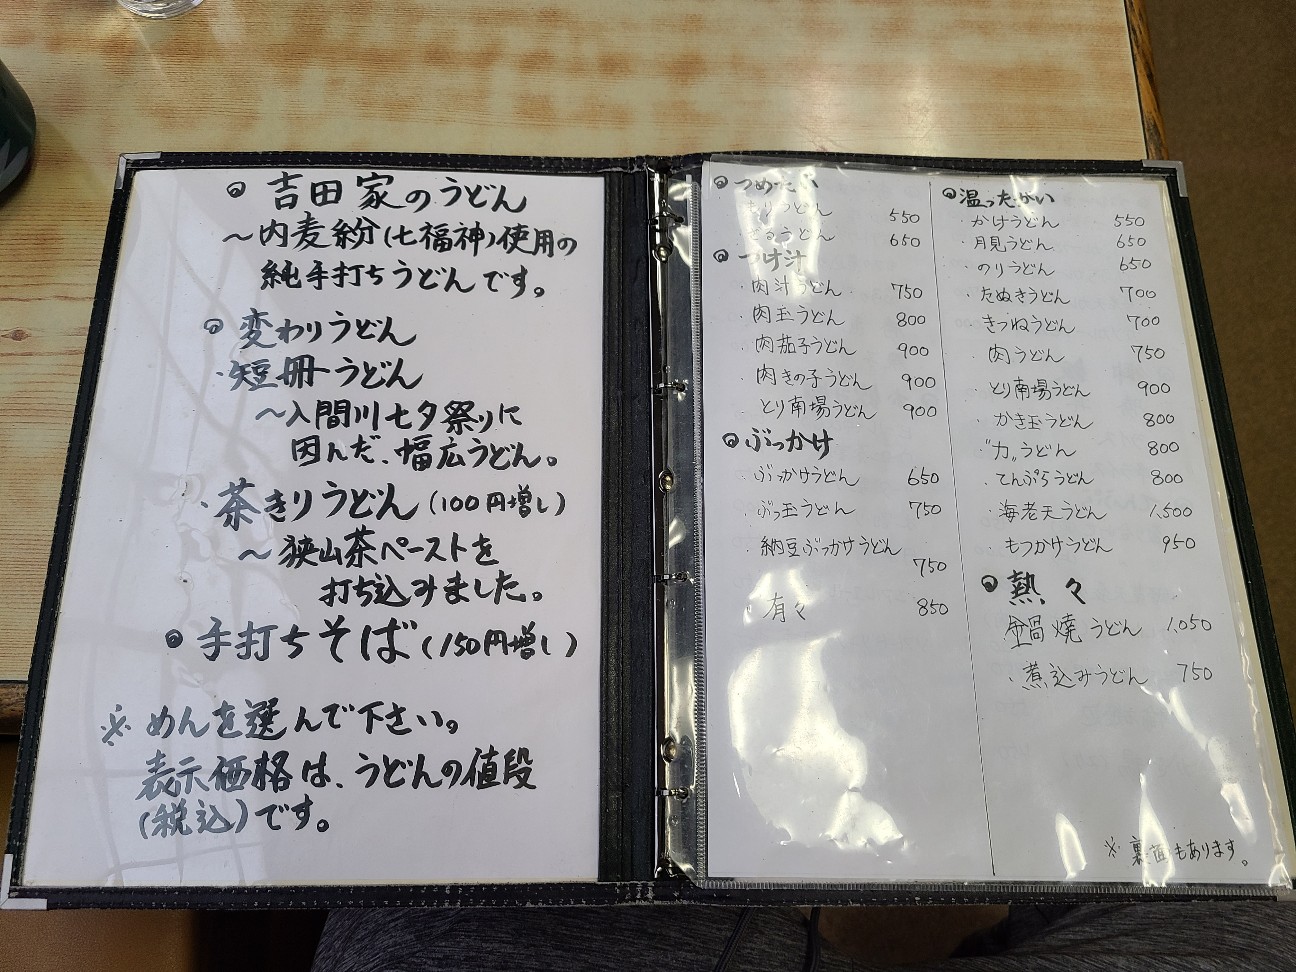 吉田家のうどん
～内麦紛(七福神)使用の
純手打ちうどんです。
変わりうどん
・短冊うどん
～入間川七夕祭りに
因んだ、幅広うどん。
・茶きりうどん(100円増し)
～狭山茶ペーストを
打ち込みました。
手打ちそば(150円増し)
※めんを選んで下さい。
表示価格は、うどんの値段
(税込)です。
つめたい
もりうどん 550
ざるうどん 650
つけ汁
・肉汁うどん 750
・肉玉うどん 800
・肉茄子うどん 900
・肉きの子うどん 900
とり南場うどん 900
ぶっかけ
・ぶっかけうどん 650
・ぶっ玉うどん 750
・納豆ぶっかけうどん
750
・有々 850
温ったかい
・かけうどん 550
・月見うどん 650
・のりうどん 650
・たぬきうどん 700
・きつねうどん 700
・肉うどん 750
・とり南場うどん 900
・かき玉うどん 800
"力"うどん 800
・てんぷらうどん 800
・海老天うどん 1,500
・もつかけうどん 950
熱々
鍋焼うどん 1,050
・煮込みうどん 750
※裏面もあります。